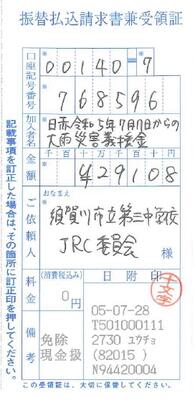 振替払込請求書兼受領証
口座記号番号
00140-7
768596
加入者名
日赤令和5年7月7日からの
大雨災害義援金
金額
千百十万千百十円
¥29108
ご依頼人
おなまえ
須賀川市立第三中学校
JRC委員会
様
料金
(消費税込み)
0円
日附印
備考
免除
現金扱
05-07-28
T501000111
2730 ユウチョ
(82015)
N94420004
記載事項を訂正した場合は、その箇所に訂正印を押してください。
この受領証は、大切に保管してください。